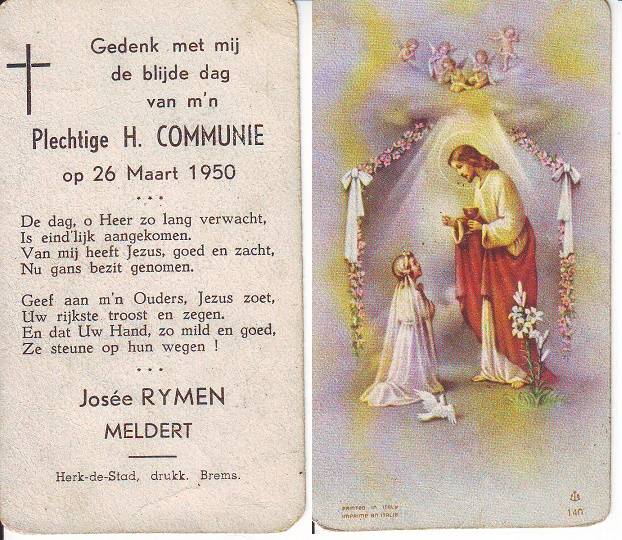 Gedenk met mij
de blijde dag
van m'n
Plechtige H. COMMUNIE
op 26 Maart 1950
• • •
De dag, o Heer zo lang verwacht,
Is eind'lijk aangekomen.
Van mij heeft Jezus, goed en zacht,
Nu gans bezit genomen.
Geef aan m'n Ouders, Jezus zoet,
Uw rijkste troost en zegen.
En dat Uw Hand, zo mild en goed,
Ze steune op hun wegen !
• • •
Josée RYMEN
MELDERT
Herk-de-Stad, drukk. Brems.
PRINTED IN ITALY
IMPRIMÉ EN ITALIE
140